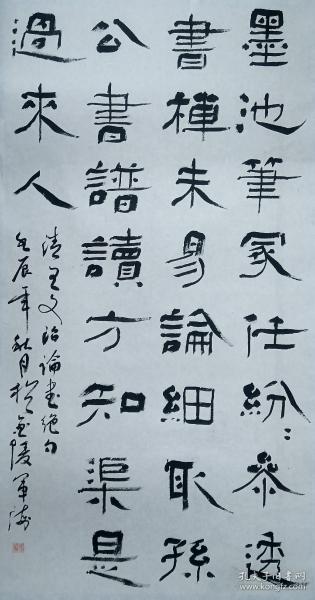 墨池筆冢任紛〻參透
書禪未易論細取孫
公書譜讀方知渠是
過來人
清王文治論書绝句
壬辰年秋月於金陵軍海
孔夫子旧书网